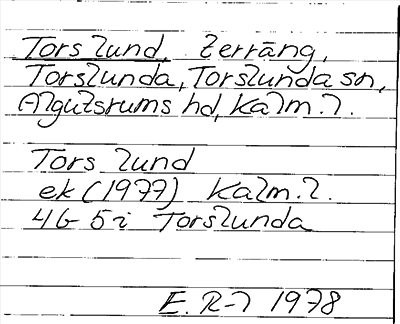 Torslund, terräng,
Torslunda, Torslunda sn,
Algutsrums hd, Kalm. l.
Tors lund
ek (1977) Kalm. l.
4G 5i Torslunda
E. R-l 1978